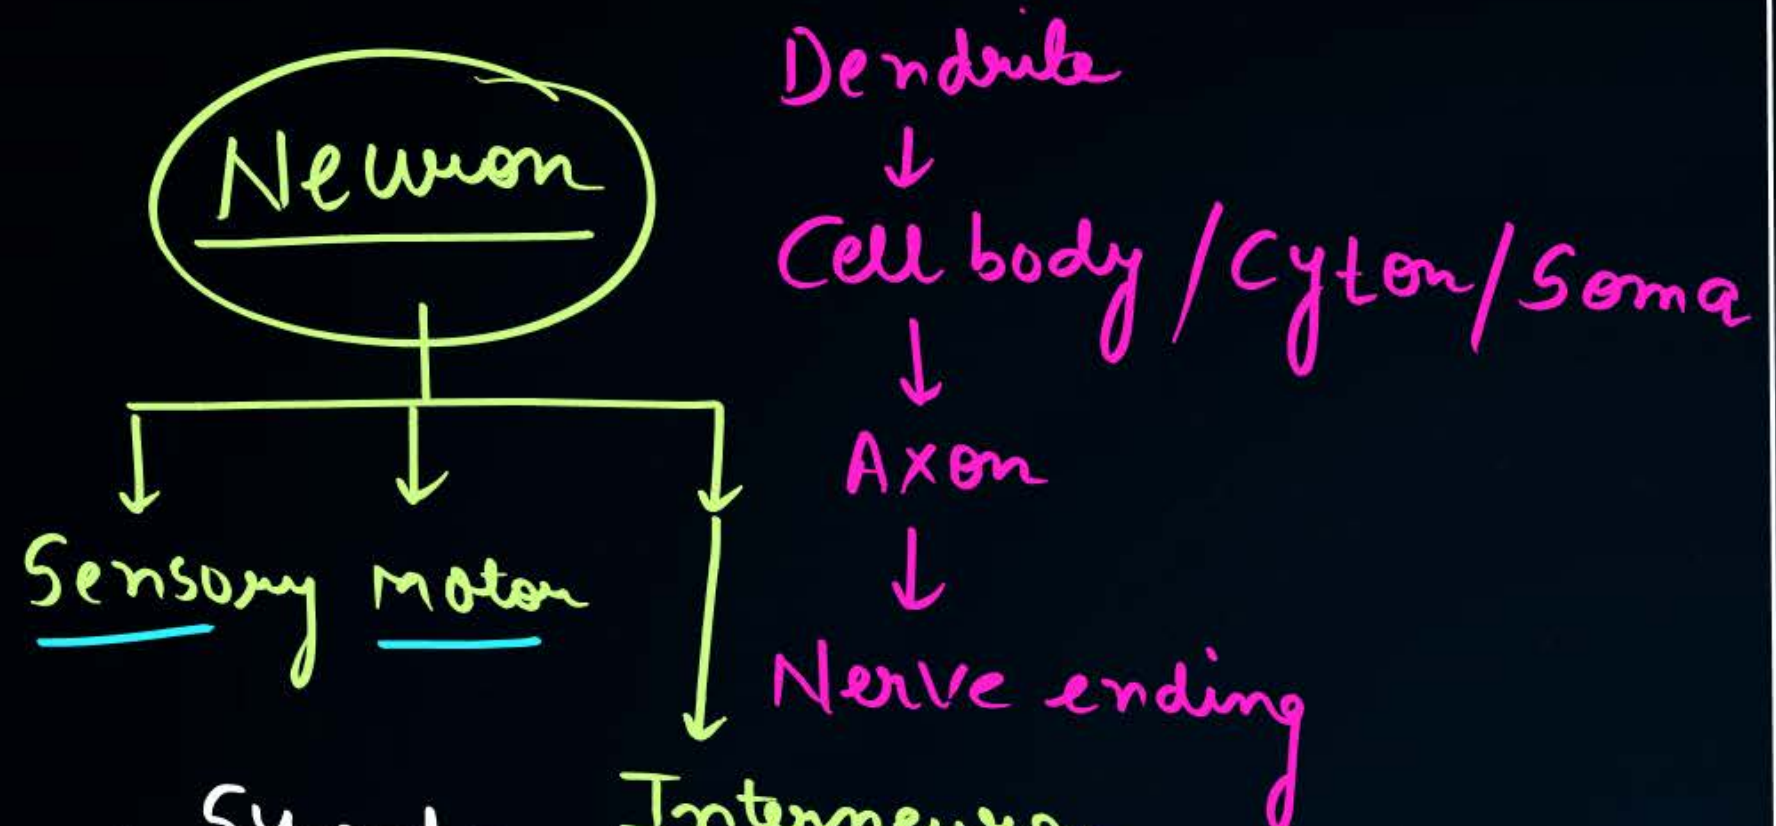 Neuron
Sensory motor
Dendrite
↓
Cell body/Cyton/Soma
↓
Axon
↓
Nerve ending